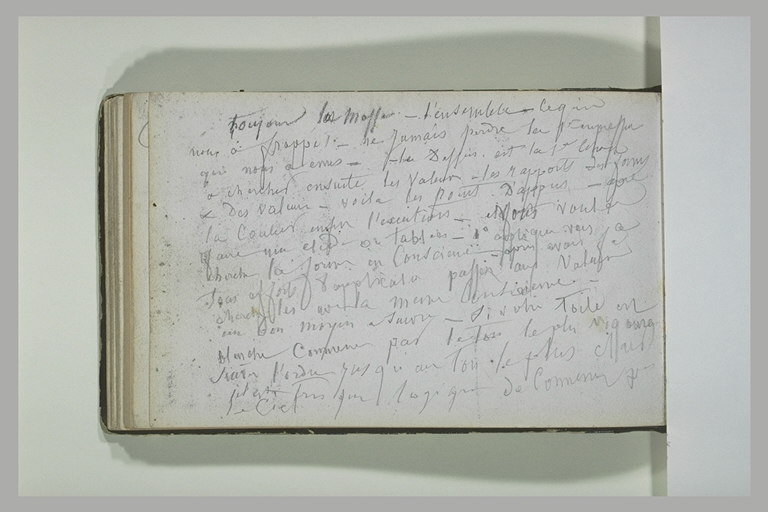 Toujours la Masse - l'ensemble - ce qui
nous a frappé. - ne jamais perdre la 1re impression
qui nous a émus - Le Dessin est la 1re chose
à chercher ensuite les valeurs - les rapports des formes
& des valeurs - voilà les points d'appuis - après
la Couleur enfin l'exécution - voulez
faire une étude ou tableau - appliquez vous à
chercher la forme en Conscience - après avoir fait
tous efforts passer aux Valeurs
cherchez les avec la même
un bon moyen à suivre - Si votre toile est
blanche Commencer par le ton le plus vigoureux
suivre l'ordre jusqu'au ton le plus clair
fort peu logique de Commencer par
le Ciel